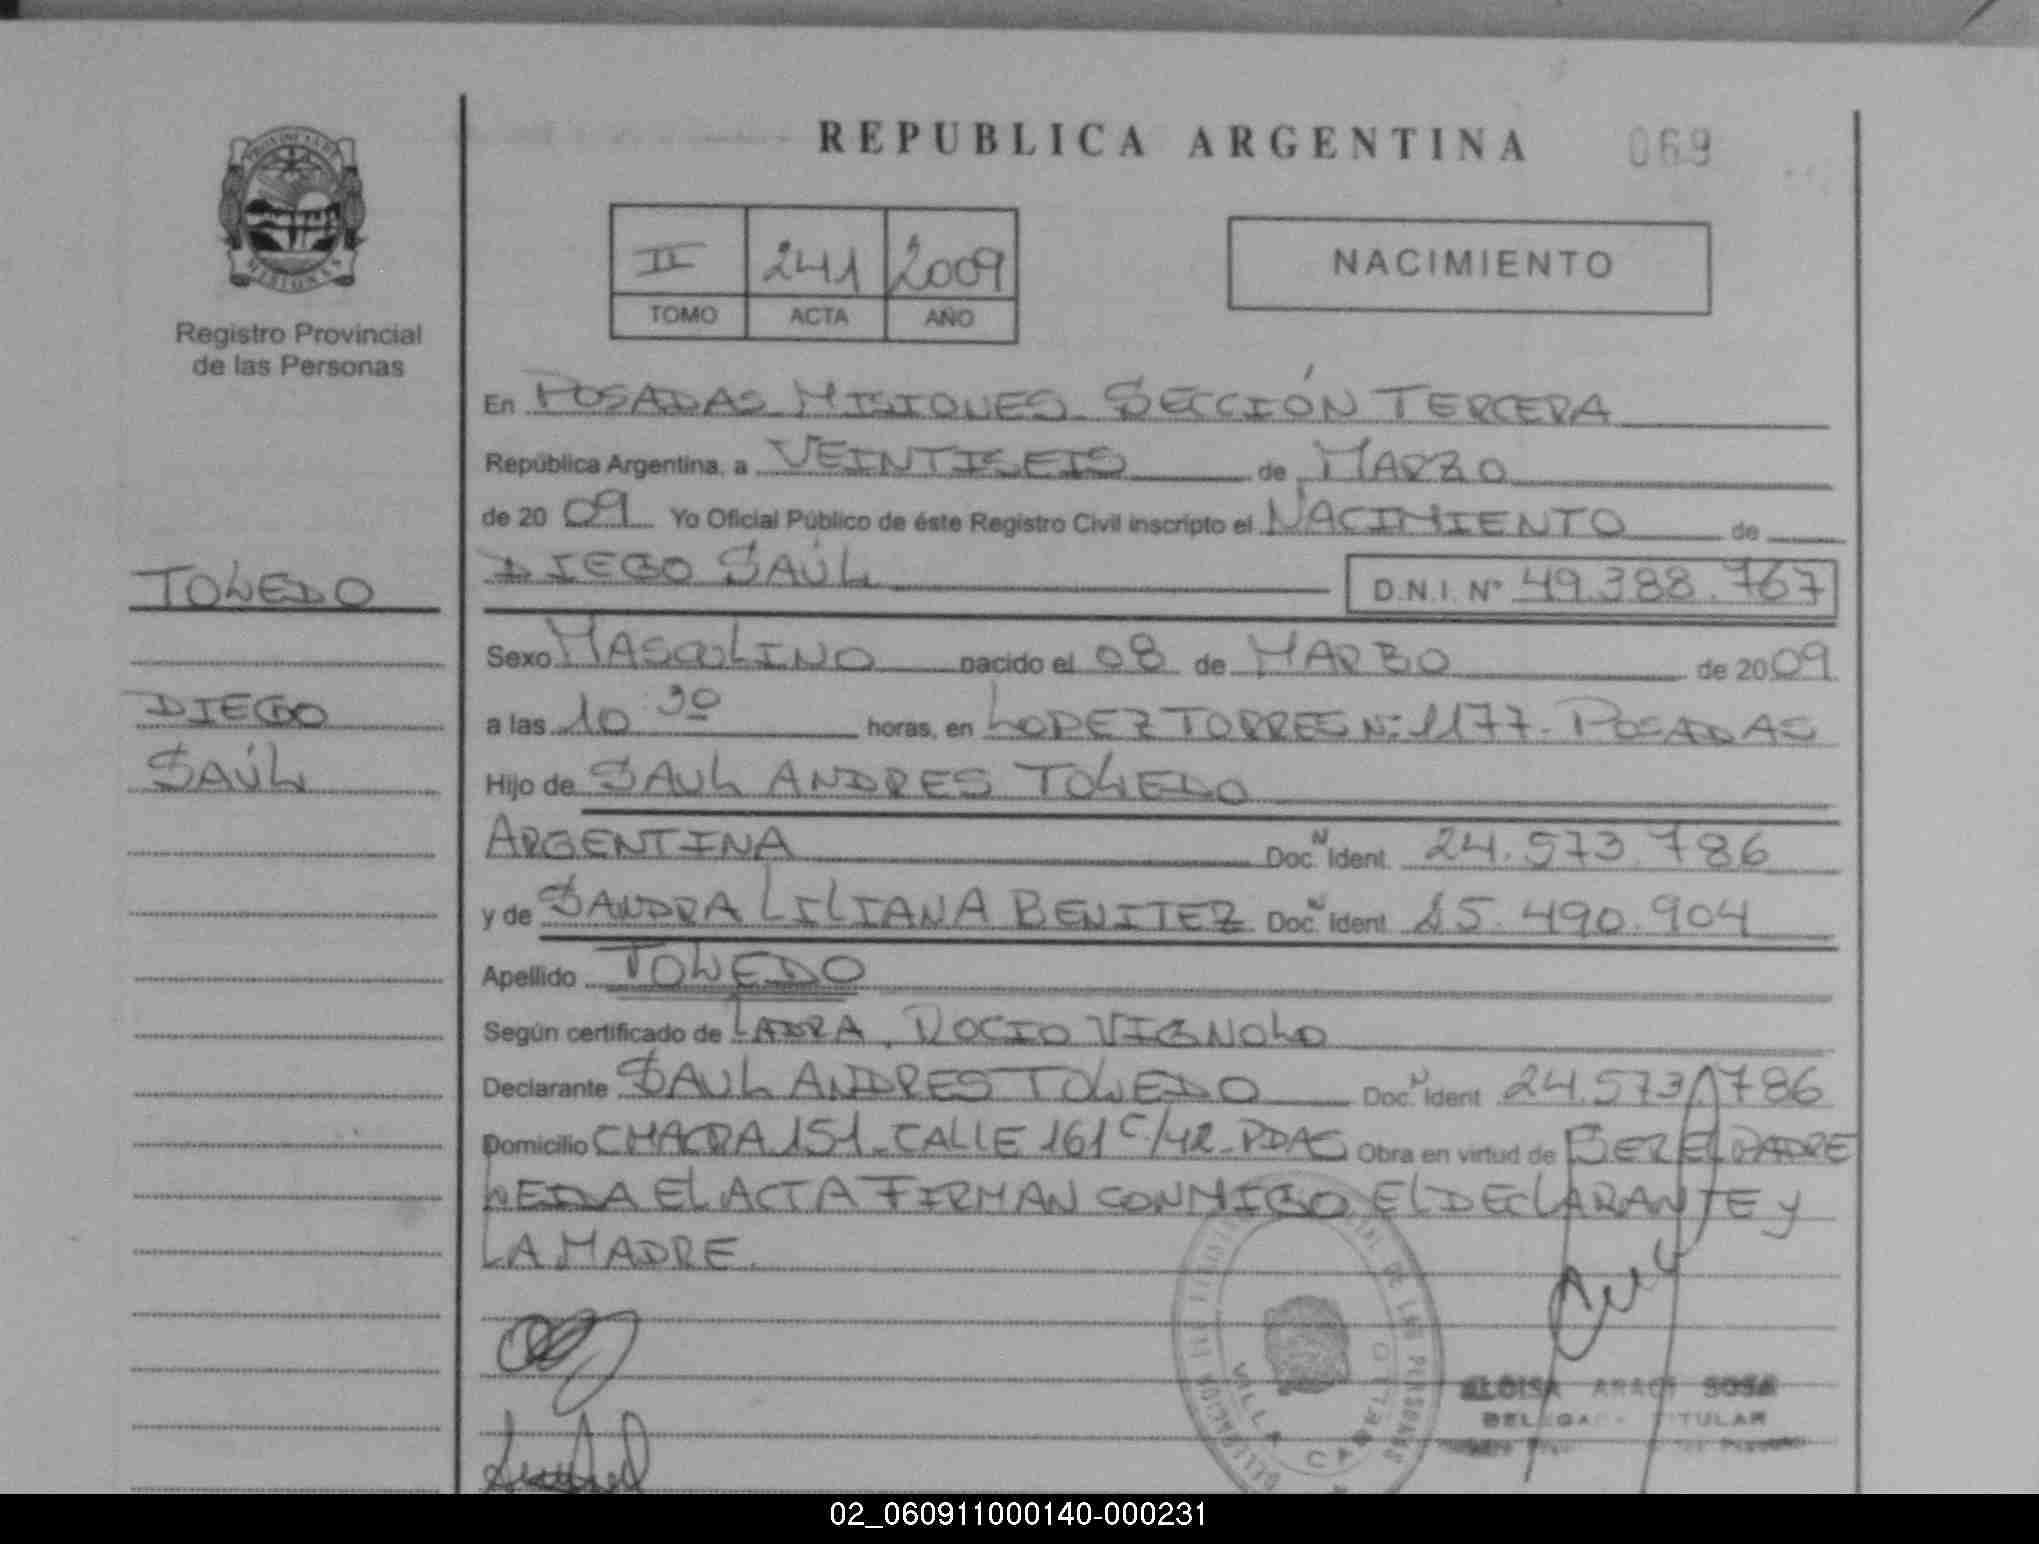 REPUBLICA ARGENTINA 069
PROVINCIA DE
MISIONES
Registro Provincial
de las Personas
II 241 2009
TOMO ACTA AÑO
NACIMIENTO
En POSADAS MISIONES. SECCIÓN TERCERA
República Argentina, a VEINTISEIS de MARZO
de 2009 Yo Oficial Público de éste Registro Civil inscripto el NACIMIENTO de
TOLEDO
DIEGO SAÚL D.N.I. Nº 49.388.767
Sexo MASCULINO nacido el 08 de MARZO de 2009
DIEGO
SAÚL
a las 10 30 horas, en LOPEZ TORRES Nº 1177. POSADAS
Hijo de SAUL ANDRES TOLEDO
ARGENTINA Doc. N Ident. 24.573.786
y de SANDRA LILIANA BENITEZ Doc. N Ident. 25.490.904
Apellido TOLEDO
Según certificado de ROCIO VIGNOLO
Declarante SAUL ANDRES TOLEDO Doc. N Ident. 24.573.786
Domicilio CHACRA 151. CALLE 161 C/42. PDAS Obra en virtud de SER EL PADRE
LEIDA EL ACTA FIRMAN CONMIGO EL DECLARANTE Y
LA MADRE.
DE LAS PERSONAS
VILLA CABELLO
ELOISA ARACI SOSA
DELEGADA TITULAR
02_060911000140-000231